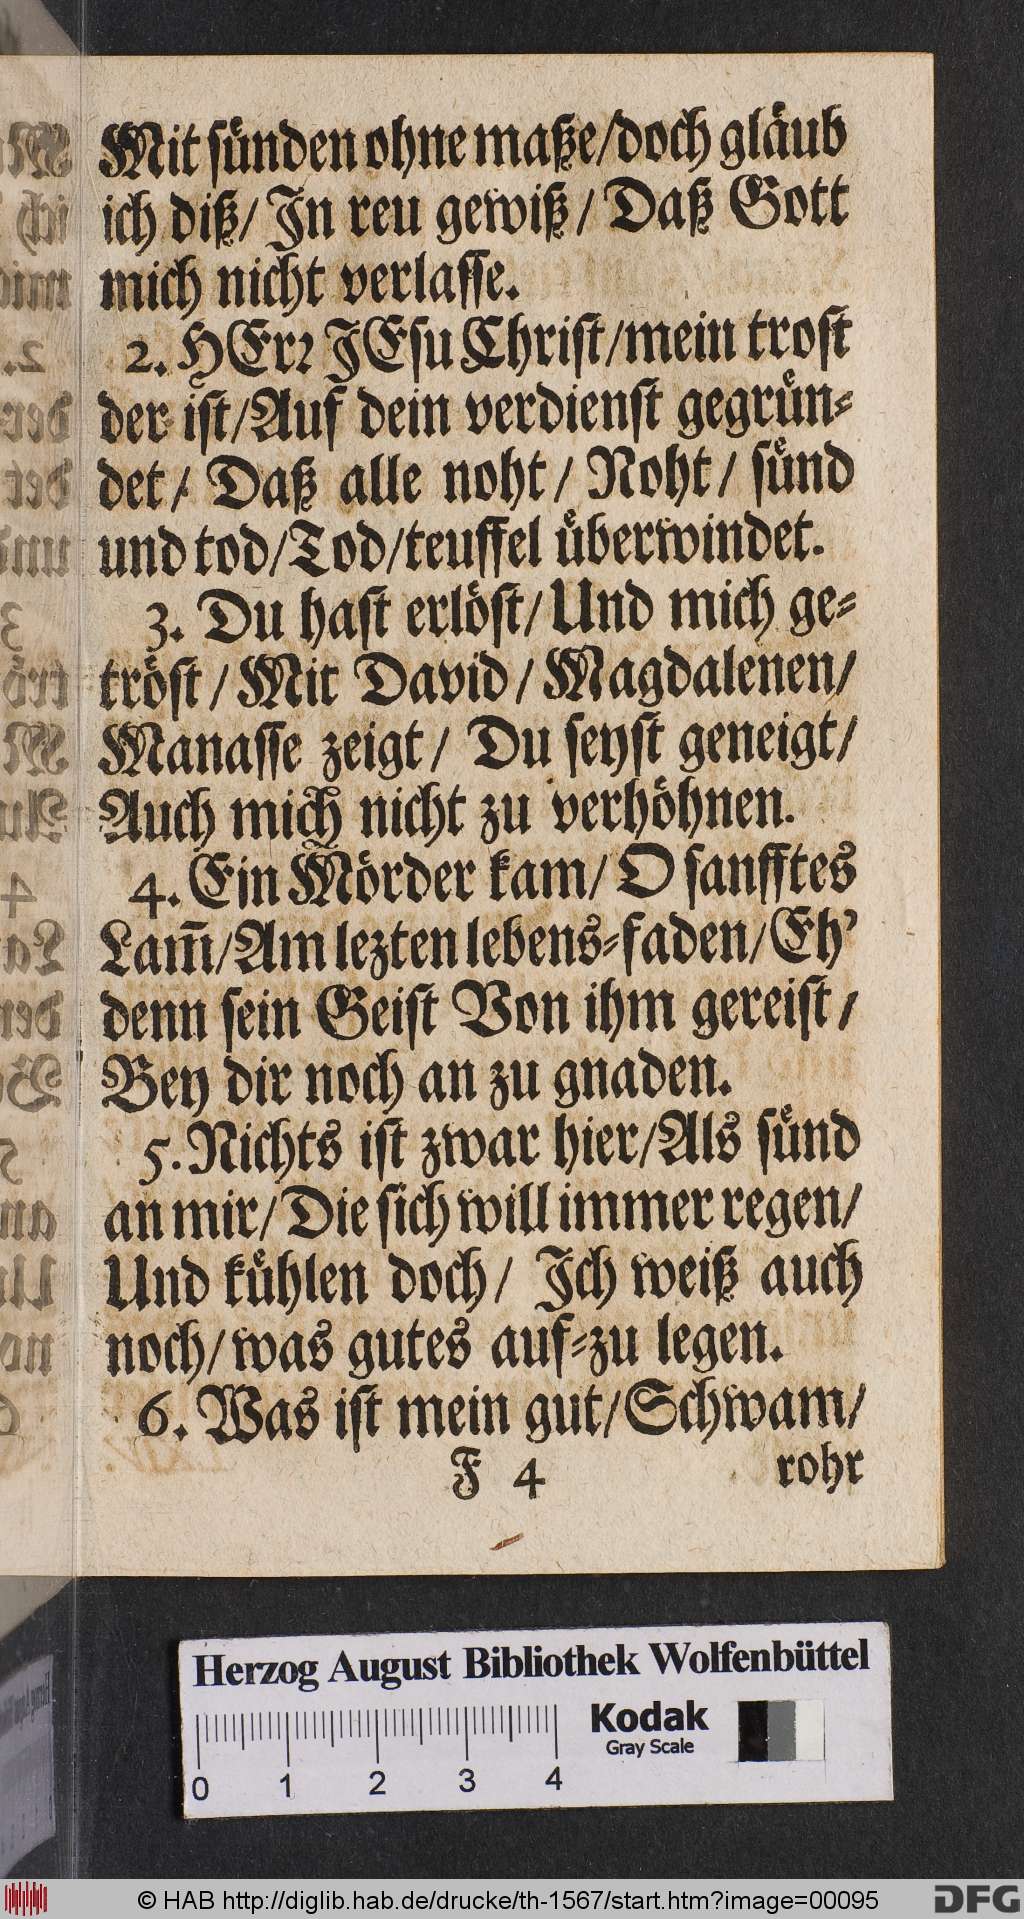 Mit sünden ohne maße/doch gläub
ich diß/ In reu gewiß/ Daß Gott
mich nicht verlasse.
2. HErr JEsu Christ/mein trost
der ist/Auf dein verdienst gegrün-
det/ Daß alle noht/ Noht/ sünd
und tod/Tod/teuffel überwindet.
3. Du hast erlöst/ Und mich ge-
tröst/ Mit David/ Magdalenen/
Manasse zeigt/ Du seyst geneigt/
Auch mich nicht zu verhöhnen.
4. Ein Mörder kam/ O sanfftes
Lam̃/Am lezten lebens-faden/Eh'
denn sein Geist Von ihm gereist/
Bey dir noch an zu gnaden.
5. Nichts ist zwar hier/Als sünd
an mir/ Die sich will immer regen/
Und kühlen doch/ Ich weiß auch
noch/was gutes auf-zu legen.
6. Was ist mein gut/Schwam/
F 4 rohr
Herzog August Bibliothek Wolfenbüttel
Kodak
Gray Scale
0 1 2 3 4
© HAB http://diglib.hab.de/drucke/th-1567/start.htm?image=00095
DFG